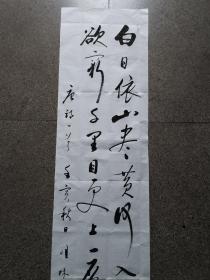 白日依山尽黄河入
欲穷千里目更上一层
唐诗一首